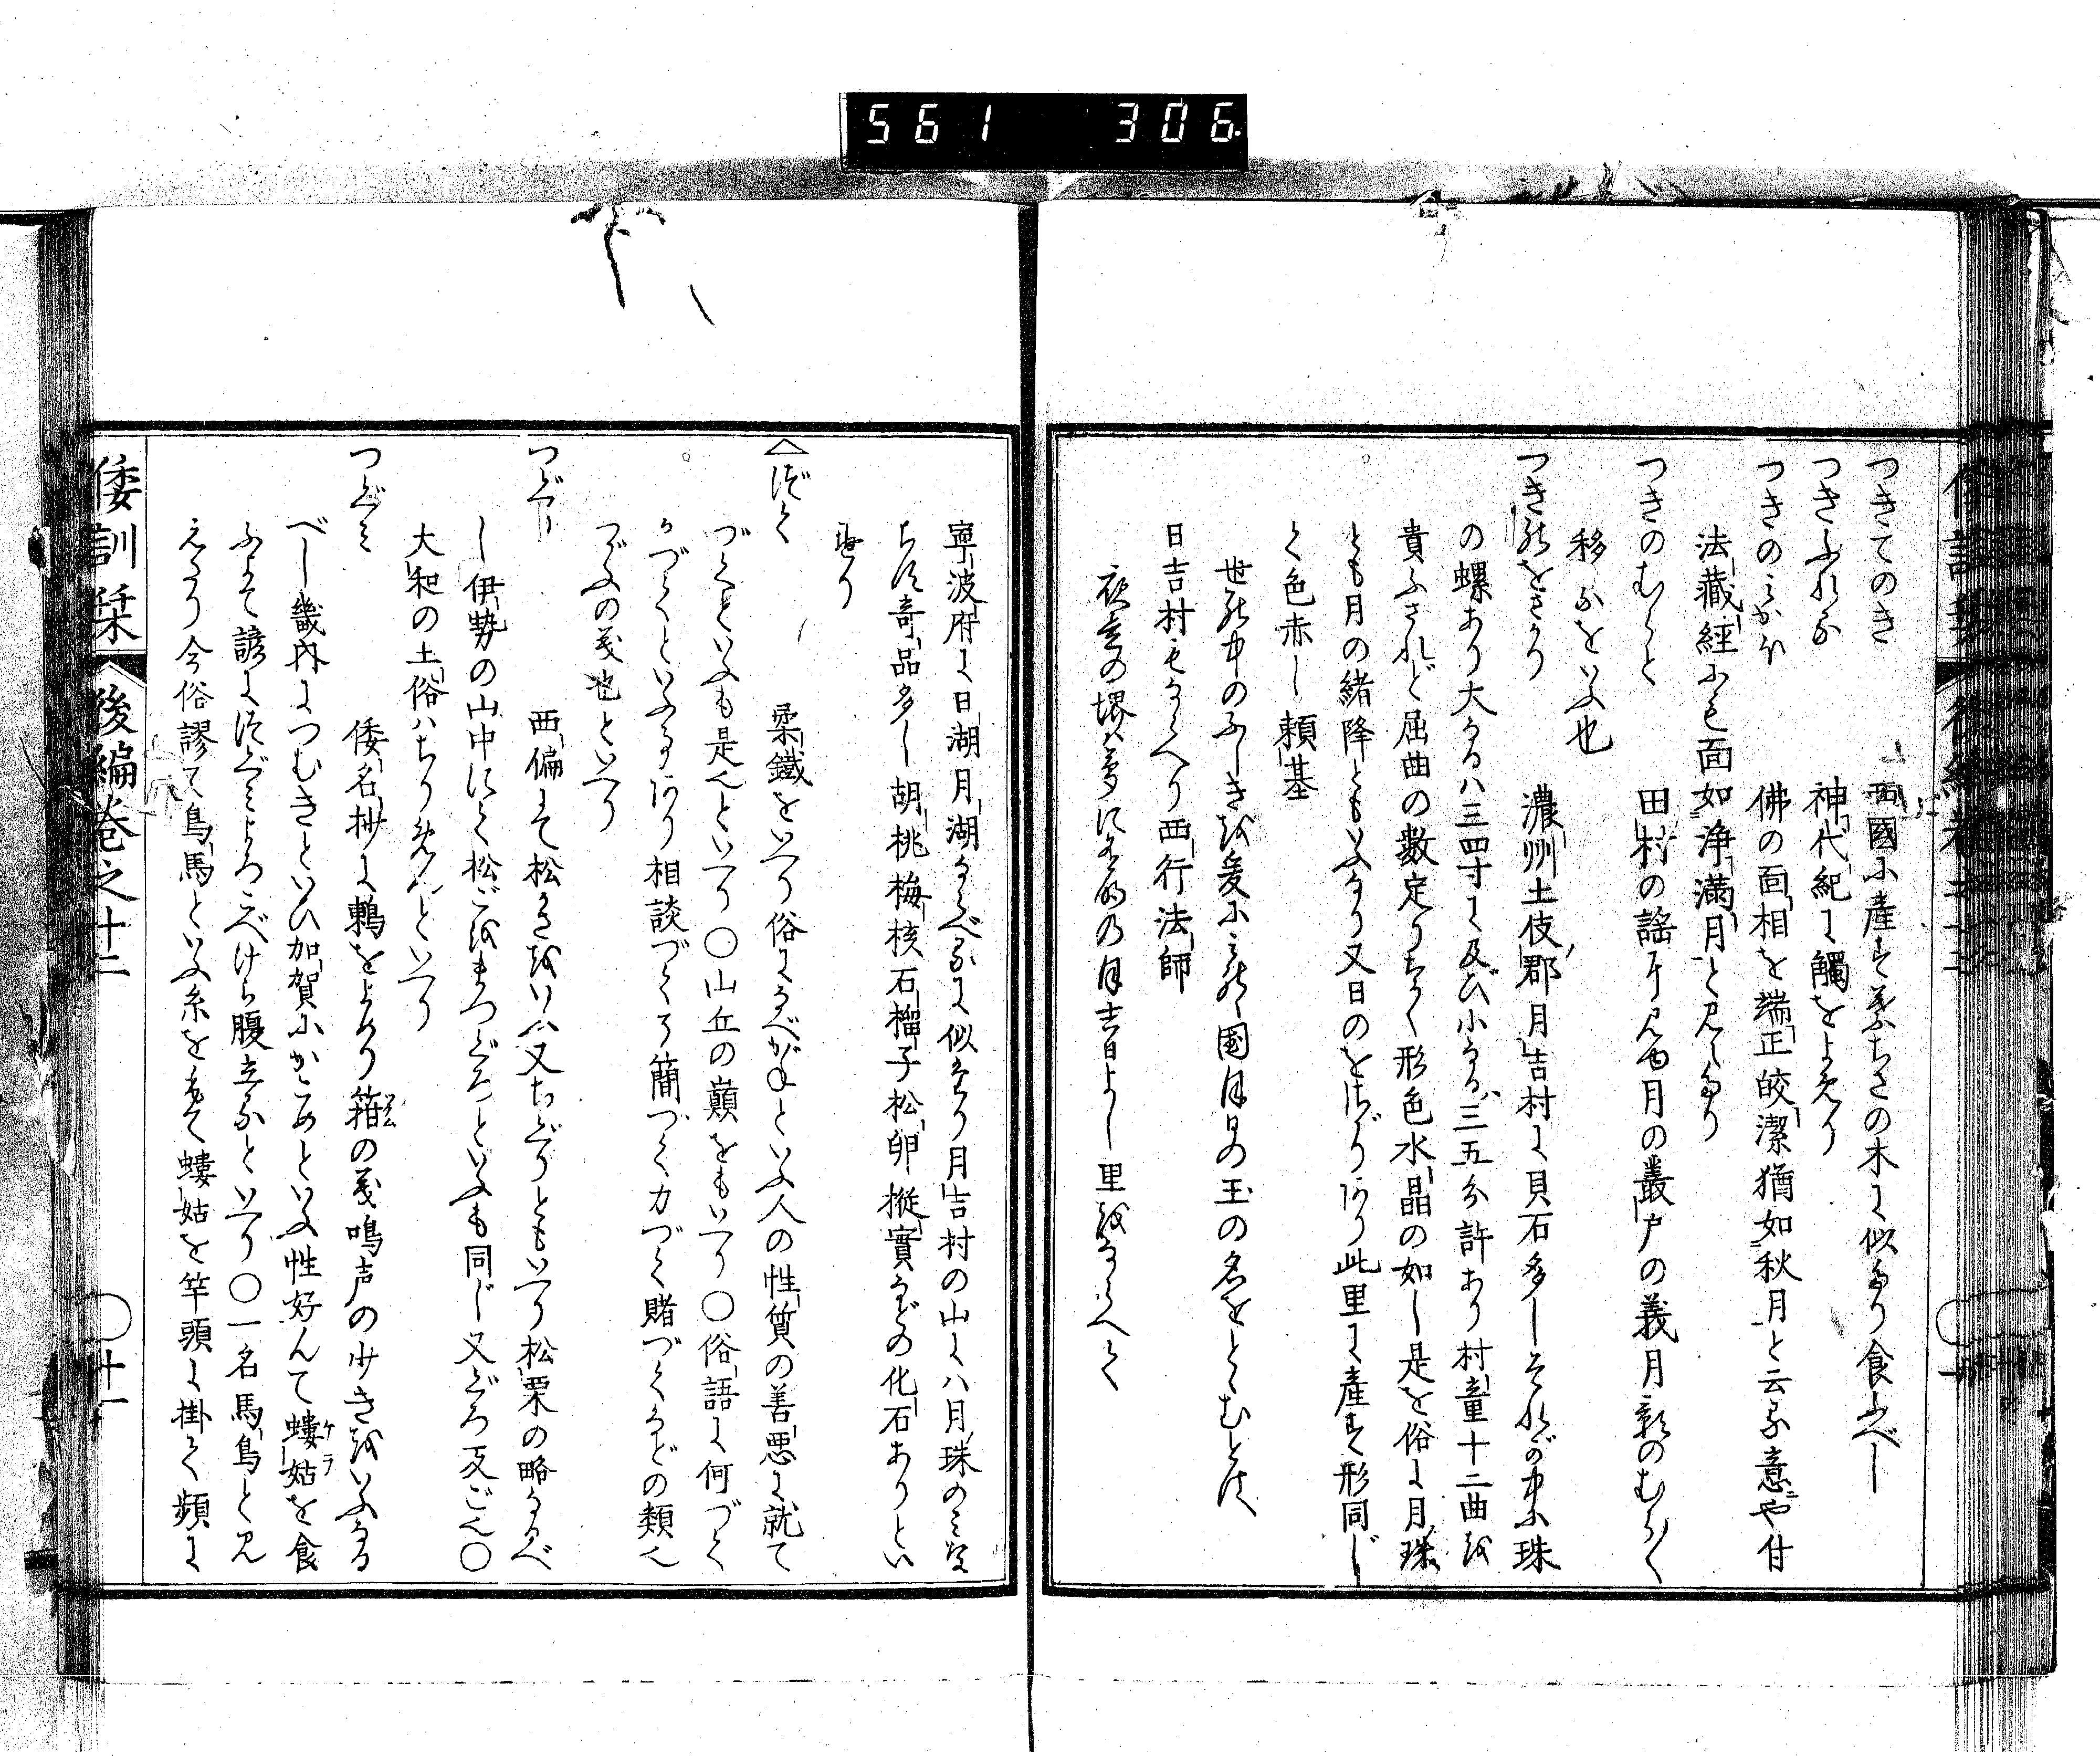 561 306
つきてのき 西國に産す葉ちさの木に似たり食ふべし
つきふれる 神代紀に觸をよめり
つきのみかほ 佛の面相を端正皎潔猶如秋月と云る意や付
法藏經にも面如浄満月と見えたり
つきのむらと 田村の謡に見ゆ月の叢戸の義月影のむらく
移るをいふ也
つきのをさがり 濃州土伎郡月吉村に貝石多しそれが中に珠
の螺あり大なるハ三四寸に及び小なるハ三五分許あり村童十二曲を
貴ふされど屈曲の數定りなく形色水晶の如し是を俗に月珠
とも月の緒降ともいふなり又日のをさがりあり此里に産す形同じ
く色赤し頼基
世の中のふしぎを爰にみの國月日の玉の名をとゝむとは
日吉村もならへり西行法師
夜晝の堺ハ夢にみの月吉日よし里をならへて
寧波府に日湖月湖ならべるに似たり月吉村の山に八月珠のみな
らず奇品多し胡桃梅核石榴子松卵樅實などの化石ありとい
へり
づく 柔鐵をいへり俗になべがねといふ人の性質の善悪に就て
づくといふも是也といへり〇山丘の巓をもいへり〇俗語に何づく
かづくといふ事あり相談づく了簡づく力づく賭づくなどの類也
つぶの義也といへり
つぐり 西偏にて松かさをいふ又ちぐりともいへり松栗の略なるべ
し伊勢の山中にて松ごをまつぐろといふも同じ又ぐろ反ご也〇
大和の土俗ハちりめんといへり
つぐミ 倭名抄に鶫をよめり箝の義鳴声のなきをいふなる
べし畿内につむぎといひ加賀にかこめといふ性好んて螻姑を食
ふよて諺につぐミよろこべけら腹立るといへり〇一名馬鳥と見
えたり今俗謬て鳥馬といふ糸をもて螻姑を竿頭に掛て頻に
倭訓栞 後編巻之十二 〇十一